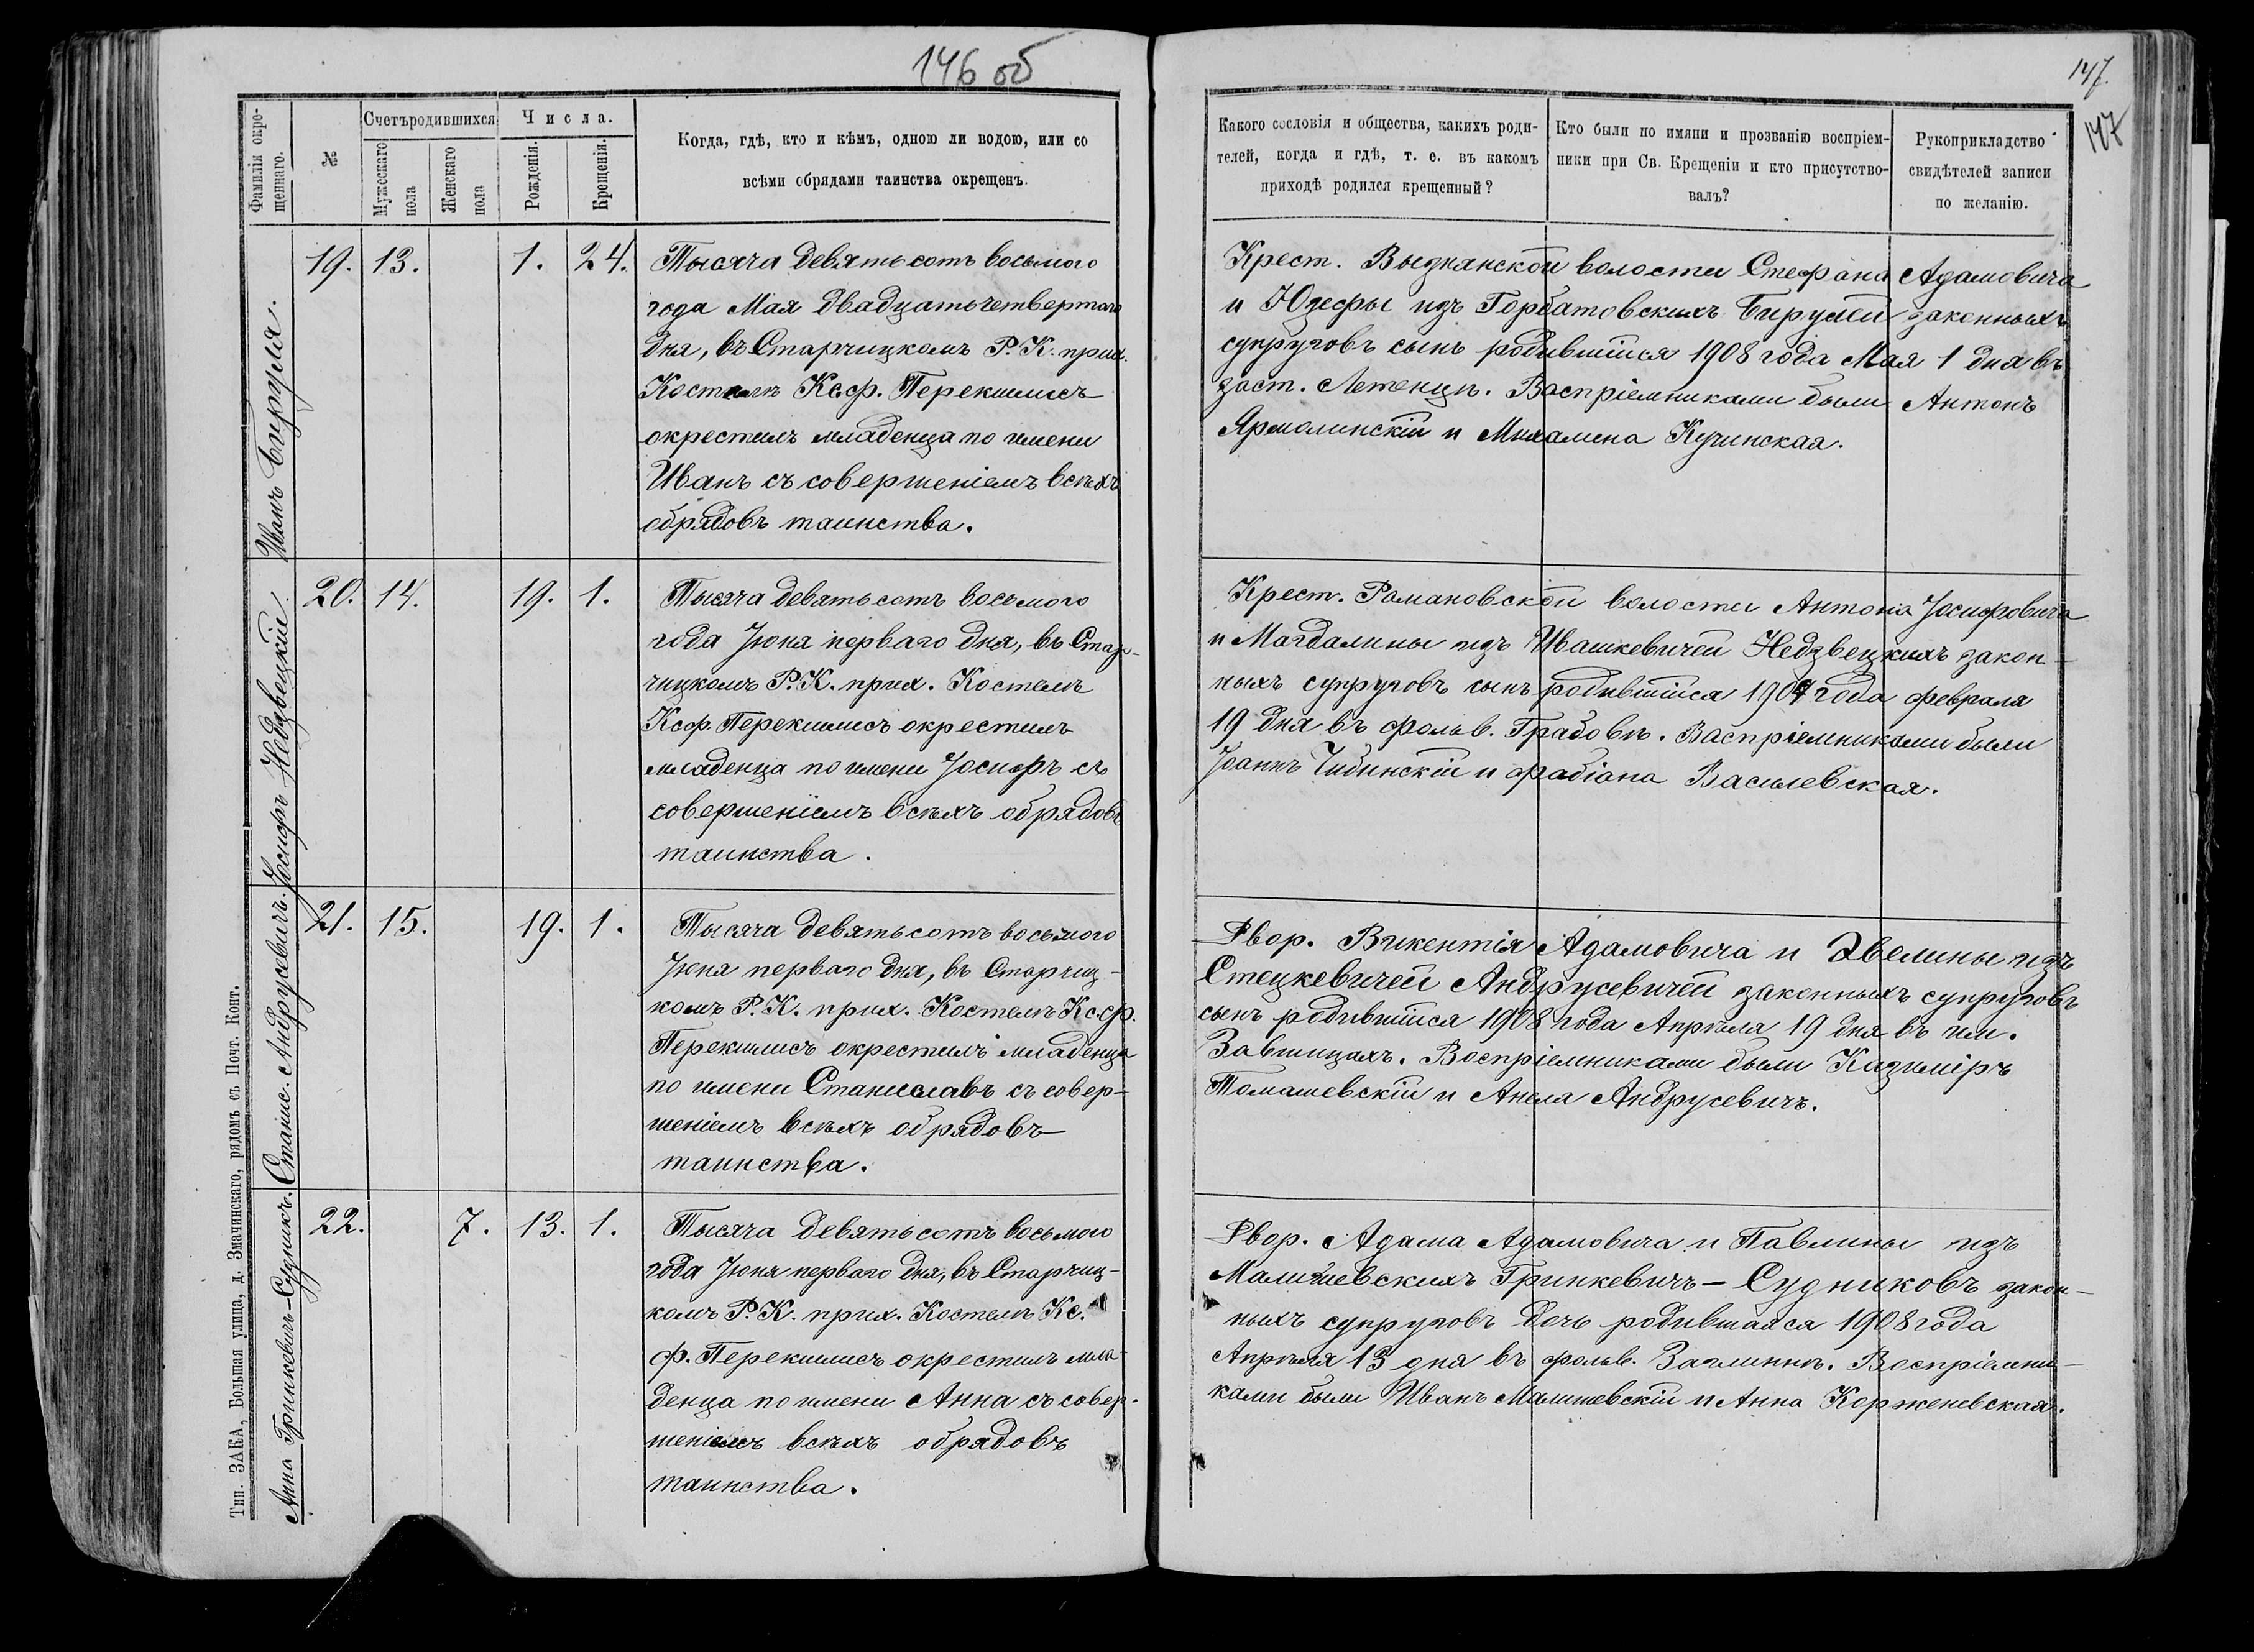 146 об
Фамилія окрещеннаго.
№
Счетъ родившихся
Мужескаго пола
Женскаго пола
Числа.
Рожденія.
Крещенія.
Когда, гдѣ, кто и кѣмъ, одною ли водою, или со
всѣми обрядами таинства окрещенъ.
Иванъ Бируля.
19. 13. 1. 24.
Тысяча девятьсотъ восьмого
года Мая двадцать четвертаго
дня, въ Старчицкомъ Р. К. прих.
Костелѣ Кс. Ф. Перекшлисъ
окрестилъ младенца по имени
Иванъ съ совершеніемъ всѣхъ
обрядовъ таинства.
Іосифъ Недзвецкій.
20. 14. 19. 1.
Тысяча девятьсотъ восьмого
года Іюня перваго дня, въ Стар-
чицкомъ Р. К. прих. Костелѣ
Кс. Ф. Перекшлисъ окрестилъ
младенца по имени Іосифъ съ
совершеніемъ всѣхъ обрядовъ
таинства.
Станис. Андрусевичъ.
21. 15. 19. 1.
Тысяча девятьсотъ восьмого
Іюня перваго дня, въ Старчиц-
комъ Р. К. прих. Костелѣ Кс. Ф.
Перекшлисъ окрестилъ младенца
по имени Станиславъ съ совер-
шеніемъ всѣхъ обрядовъ
таинства.
Анна Гринкевичъ-Судникъ.
22. 7. 13. 1.
Тысяча девятьсотъ восьмого
года Іюня перваго дня, въ Старчиц-
комъ Р. К. прих. Костелѣ Кс.
Ф. Перекшлисъ окрестилъ мла-
денца по имени Анна съ совер-
шеніемъ всѣхъ обрядовъ
таинства.
Тип. ЗАКА, Большая улица, д. Змачинскаго, рядомъ съ Почт. Конт.
147.
147
Какого сословія и общества, какихъ роди-
телей, когда и гдѣ, т. е. въ какомъ
приходѣ родился крещенный?
Кто были по имяни и прозванію воспріем-
ники при Св. Крещеніи и кто присутство-
валъ?
Рукоприкладство
свидѣтелей записи
по желанію.
Крест. Вызнянской волости Стефана Адамовича
и Юзефы изъ Горбатовскихъ Бирулей законныхъ
супруговъ сынъ родившійся 1908 года Мая 1 дня въ
заст. Летенцѣ. Воспріемниками были Антонъ
Ярмолинскій и Михалина Кучинская.
Крест. Романовской волости Антона Іосифовича
и Магдалины изъ Ивашкевичей Недзвецкихъ закон-
ныхъ супруговъ сынъ родившійся 1907 года февраля
19 дня въ фольв. Грабовѣ. Воспріемниками были
Іоаннъ Чибинскій и Фабіана Василевская.
Двор. Викентія Адамовича и Эвелины изъ
Стецкевичей Андрусевичей законныхъ супруговъ
сынъ родившійся 1908 года Апрѣля 19 дня въ им.
Завшицахъ. Воспріемниками были Казиміръ
Томашевскій и Анеля Андрусевичъ.
Двор. Адама Адамовича и Павлины изъ
Малишевскихъ Гринкевичъ-Судниковъ закон-
ныхъ супруговъ дочь родившаяся 1908 года
Апрѣля 13 дня въ фольв. Заглиннѣ. Воспріемни-
ками были Иванъ Малишевскій и Анна Корженевская.